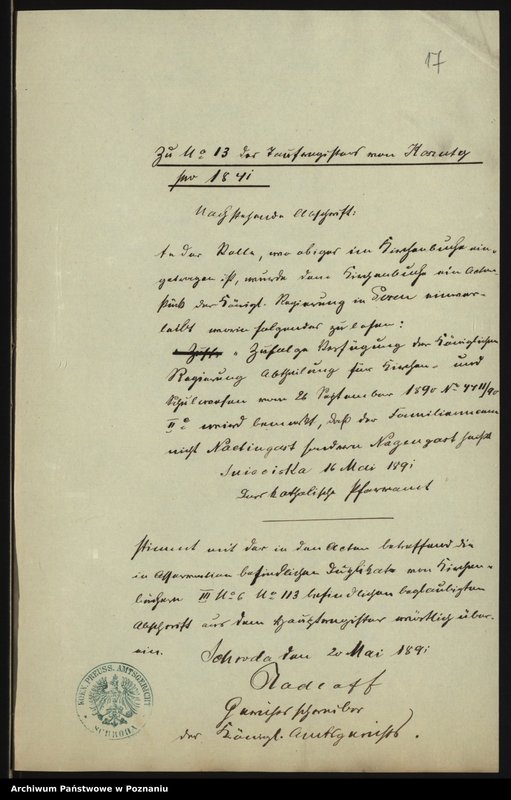 17
Zu No 13 des Taufregisters von
pro 1841
Nachstehende Abschrift:
An der Stelle, wo obiges im Kirchenbuche ein-
getragen ist, wurde dem Kirchenbuche ein Acten
stück der Königl. Regierung in Posen einver-
leibt worin folgendes zu lesen:
„ Zufolge Verfügung der Königlichen
Regierung Abtheilung für Kirchen- und
Schulwesen vom 26 September 1890 No
IIa wird bemerkt, daß der Familienname
nicht Nactingart sondern Nagengart heißt
16 Mai 1891
Das katholische Pfarramt
Stimmt mit der in den Acten betreffend die
in Asservation befindlichen Duplikate von Kirchen-
büchern III No 6 No 113 befindlichen beglaubigten
Abschrift aus dem Hauptregister wörtlich über-
ein.
Schroda den 20 Mai 1891
Gerichtsschreiber
des Königl. Amtsgerichts.
KOEN. PREUSS. AMTSGERICHT
SCHRODA
Archiwum Państwowe w Poznaniu